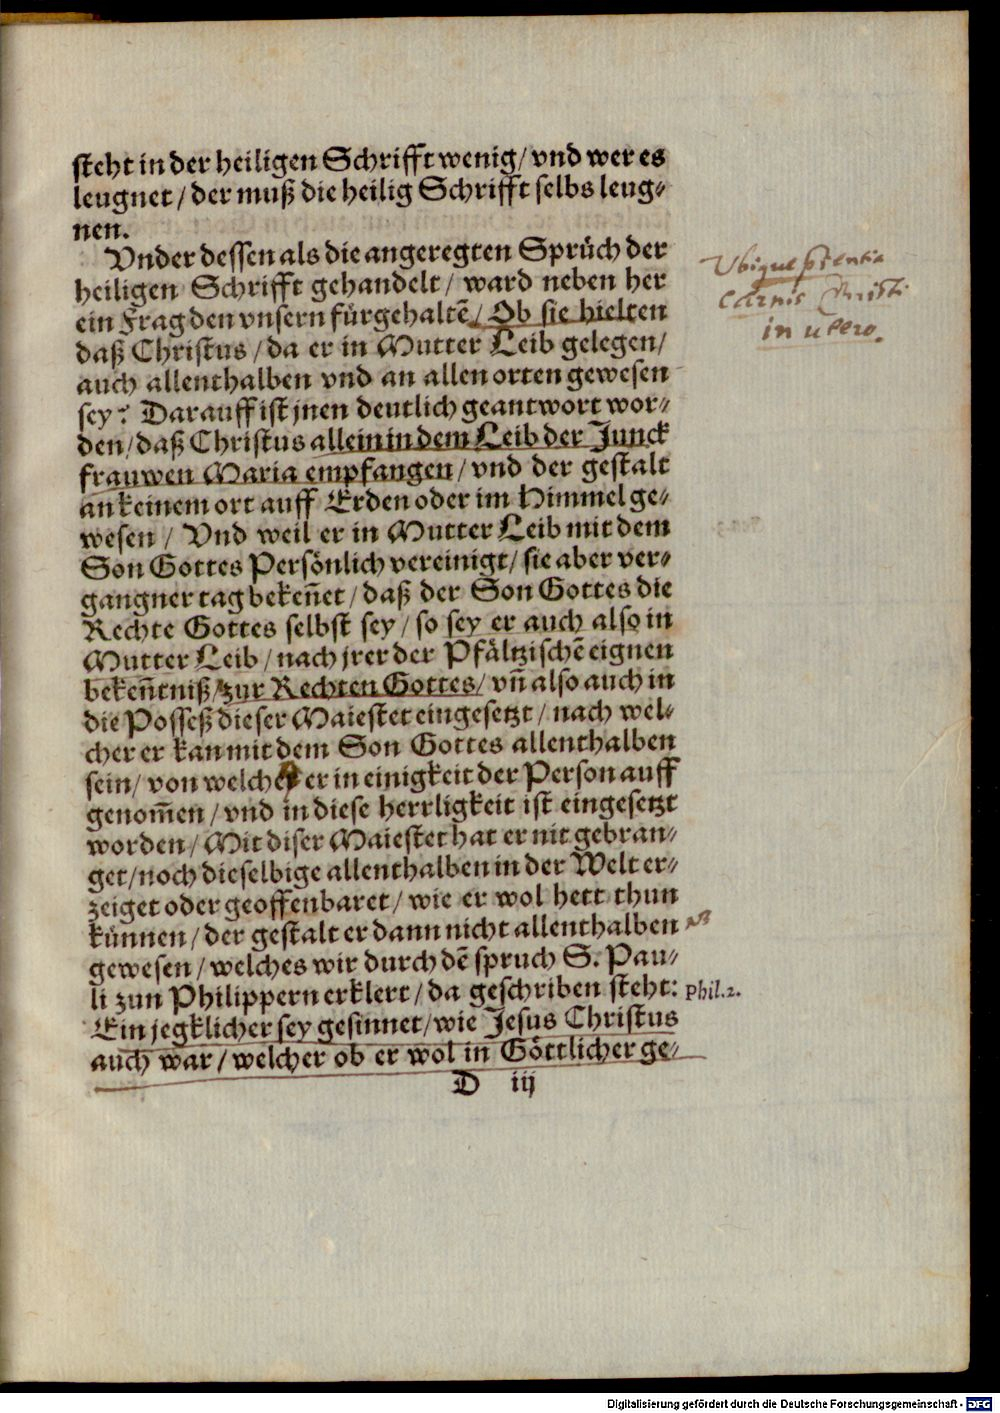 steht in der heiligen Schrifft wenig/ vnd wer es
leugnet/ der muß die heilig Schrifft selbs leug-
nen.
Vnder dessen als die angeregten Sprüch der
heiligen Schrifft gehandelt/ ward neben her
ein Frag den vnsern fürgehaltẽ/ Ob sie hielten
daß Christus/ da er in Mutter Leib gelegen/
auch allenthalben vnd an allen orten gewesen
sey? Darauff ist jnen deutlich geantwort wor-
den/ daß Christus allein in dem Leib der Junck
frauwen Maria empfangen/ vnd der gestalt
an keinem ort auff Erden oder im Himmel ge-
wesen/ Vnd weil er in Mutter Leib mit dem
Son Gottes Persönlich vereinigt/ sie aber ver-
gangner tag bekeñet/ daß der Son Gottes die
Rechte Gottes selbst sey/ so sey er auch also in
Mutter Leib/ nach jrer der Pfältzischẽ eignen
bekeñtniß/ zur Rechten Gottes/ vñ also auch in
die Posseß dieser Maiestet eingesetzt/ nach wel-
cher er kan mit dem Son Gottes allenthalben
sein/ von welchem er in einigkeit der Person auff
genom̃en/ vnd in diese herrligkeit ist eingesetzt
worden/ Mit diser Maiestet hat er nit gebran-
get/ noch dieselbige allenthalben in der Welt er-
zeiget oder geoffenbaret/ wie er wol hett thun
künnen/ der gestalt er dann nicht allenthalben
gewesen/ welches wir durch dẽ spruch S. Pau-
li zun Philippern erklert/ da geschriben steht:
Ein jegklicher sey gesinnet/ wie Jesus Christus
auch war/ welcher ob er wol in Göttlicher ge-
D iij
carnis Christi
in utero.
Phil. 2.
Digitalisierung gefördert durch die Deutsche Forschungsgemeinschaft - DFG